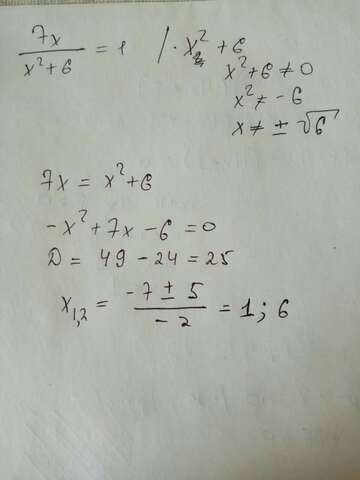 7x / (x² + 6) = 1 / · x² + 6
x² + 6 ≠ 0
x² ≠ - 6
x ≠ ± √6
7x = x² + 6
-x² + 7x - 6 = 0
D = 49 - 24 = 25
x₁,₂ = (-7 ± 5) / (-2) = 1 ; 6